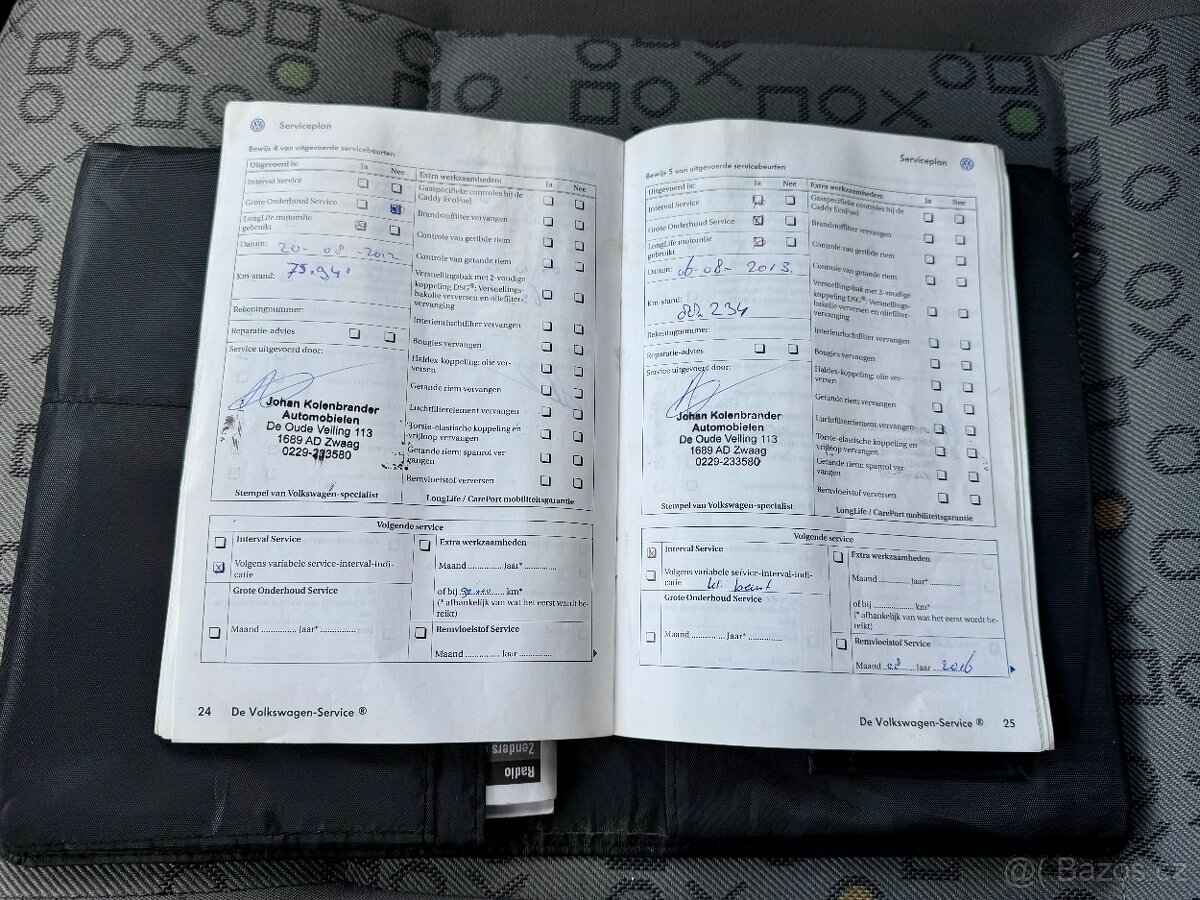 Serviceplan
Bewijs 4 van uitgevoerde servicebeurten
Uitgevoerd is:
Ja
Nee
Interval Service
Grote Onderhoud Service
LongLife motorolie
gebruikt
Datum: 20-08-2012
Km-stand: 75.94
Rekeningnummer:
Reparatie-advies
Service uitgevoerd door:
Johan Kolenbrander
Automobielen
De Oude Veiling 113
1689 AD Zwaag
0229-233580
Stempel van Volkswagen-specialist
Extra werkzaamheden:
Ja
Nee
Gasspecifieke controles bij de
Caddy EcoFuel
Brandstoffilter vervangen
Controle van geribde riem
Controle van getande riem
Versnellingsbak met 2-voudige
koppeling DSG®: Versnellings-
bakolie verversen en oliefilter-
vervanging
Interieurluchtfilter vervangen
Bougies vervangen
Haldex-koppeling: olie ver-
versen
Getande riem vervangen
Luchtfilterelement vervangen
Torsie-elastische koppeling en
vrijloop vervangen
Getande riem: spanrol ver-
vangen
Remvloeistof verversen
LongLife / CarePort mobiliteitsgarantie
Volgende service
Interval Service
Volgens variabele service-interval-indi-
catie
Grote Onderhoud Service
Maand ............ Jaar* ............
Extra werkzaamheden
Maand ............ Jaar* ............
of bij km*
(* afhankelijk van wat het eerst wordt be-
reikt)
Remvloeistof Service
Maand ............ Jaar ............
24 De Volkswagen-Service ®
Serviceplan
Bewijs 5 van uitgevoerde servicebeurten
Uitgevoerd is:
Ja
Nee
Interval Service
Grote Onderhoud Service
LongLife motorolie
gebruikt
Datum: 06-08-2013.
Km-stand: 234
Rekeningnummer:
Reparatie-advies
Service uitgevoerd door:
Johan Kolenbrander
Automobielen
De Oude Veiling 113
1689 AD Zwaag
0229-233580
Stempel van Volkswagen-specialist
Extra werkzaamheden:
Ja
Nee
Gasspecifieke controles bij de
Caddy EcoFuel
Brandstoffilter vervangen
Controle van geribde riem
Controle van getande riem
Versnellingsbak met 2-voudige
koppeling DSG®: Versnellings-
bakolie verversen en oliefilter-
vervanging
Interieurluchtfilter vervangen
Bougies vervangen
Haldex-koppeling: olie ver-
versen
Getande riem vervangen
Luchtfilterelement vervangen
Torsie-elastische koppeling en
vrijloop vervangen
Getande riem: spanrol ver-
vangen
Remvloeistof verversen
LongLife / CarePort mobiliteitsgarantie
Volgende service
Interval Service
Volgens variabele service-interval-indi-
catie kl. beurt
Grote Onderhoud Service
Maand ............ Jaar* ............
Extra werkzaamheden
Maand ............ Jaar* ............
of bij ............ km*
(* afhankelijk van wat het eerst wordt be-
reikt)
Remvloeistof Service
Maand 08 Jaar 2016
De Volkswagen-Service ® 25
Radio
Zenders
Bazos.cz